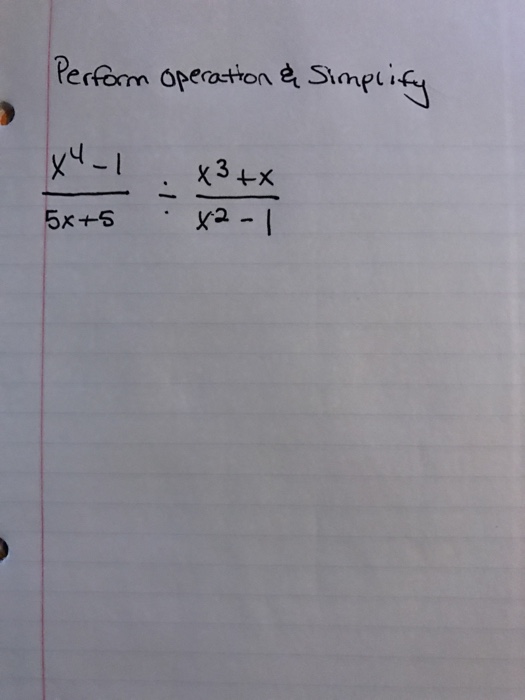 Perform operation & Simplify
x⁴-1 / 5x+5 ÷ x³+x / x²-1